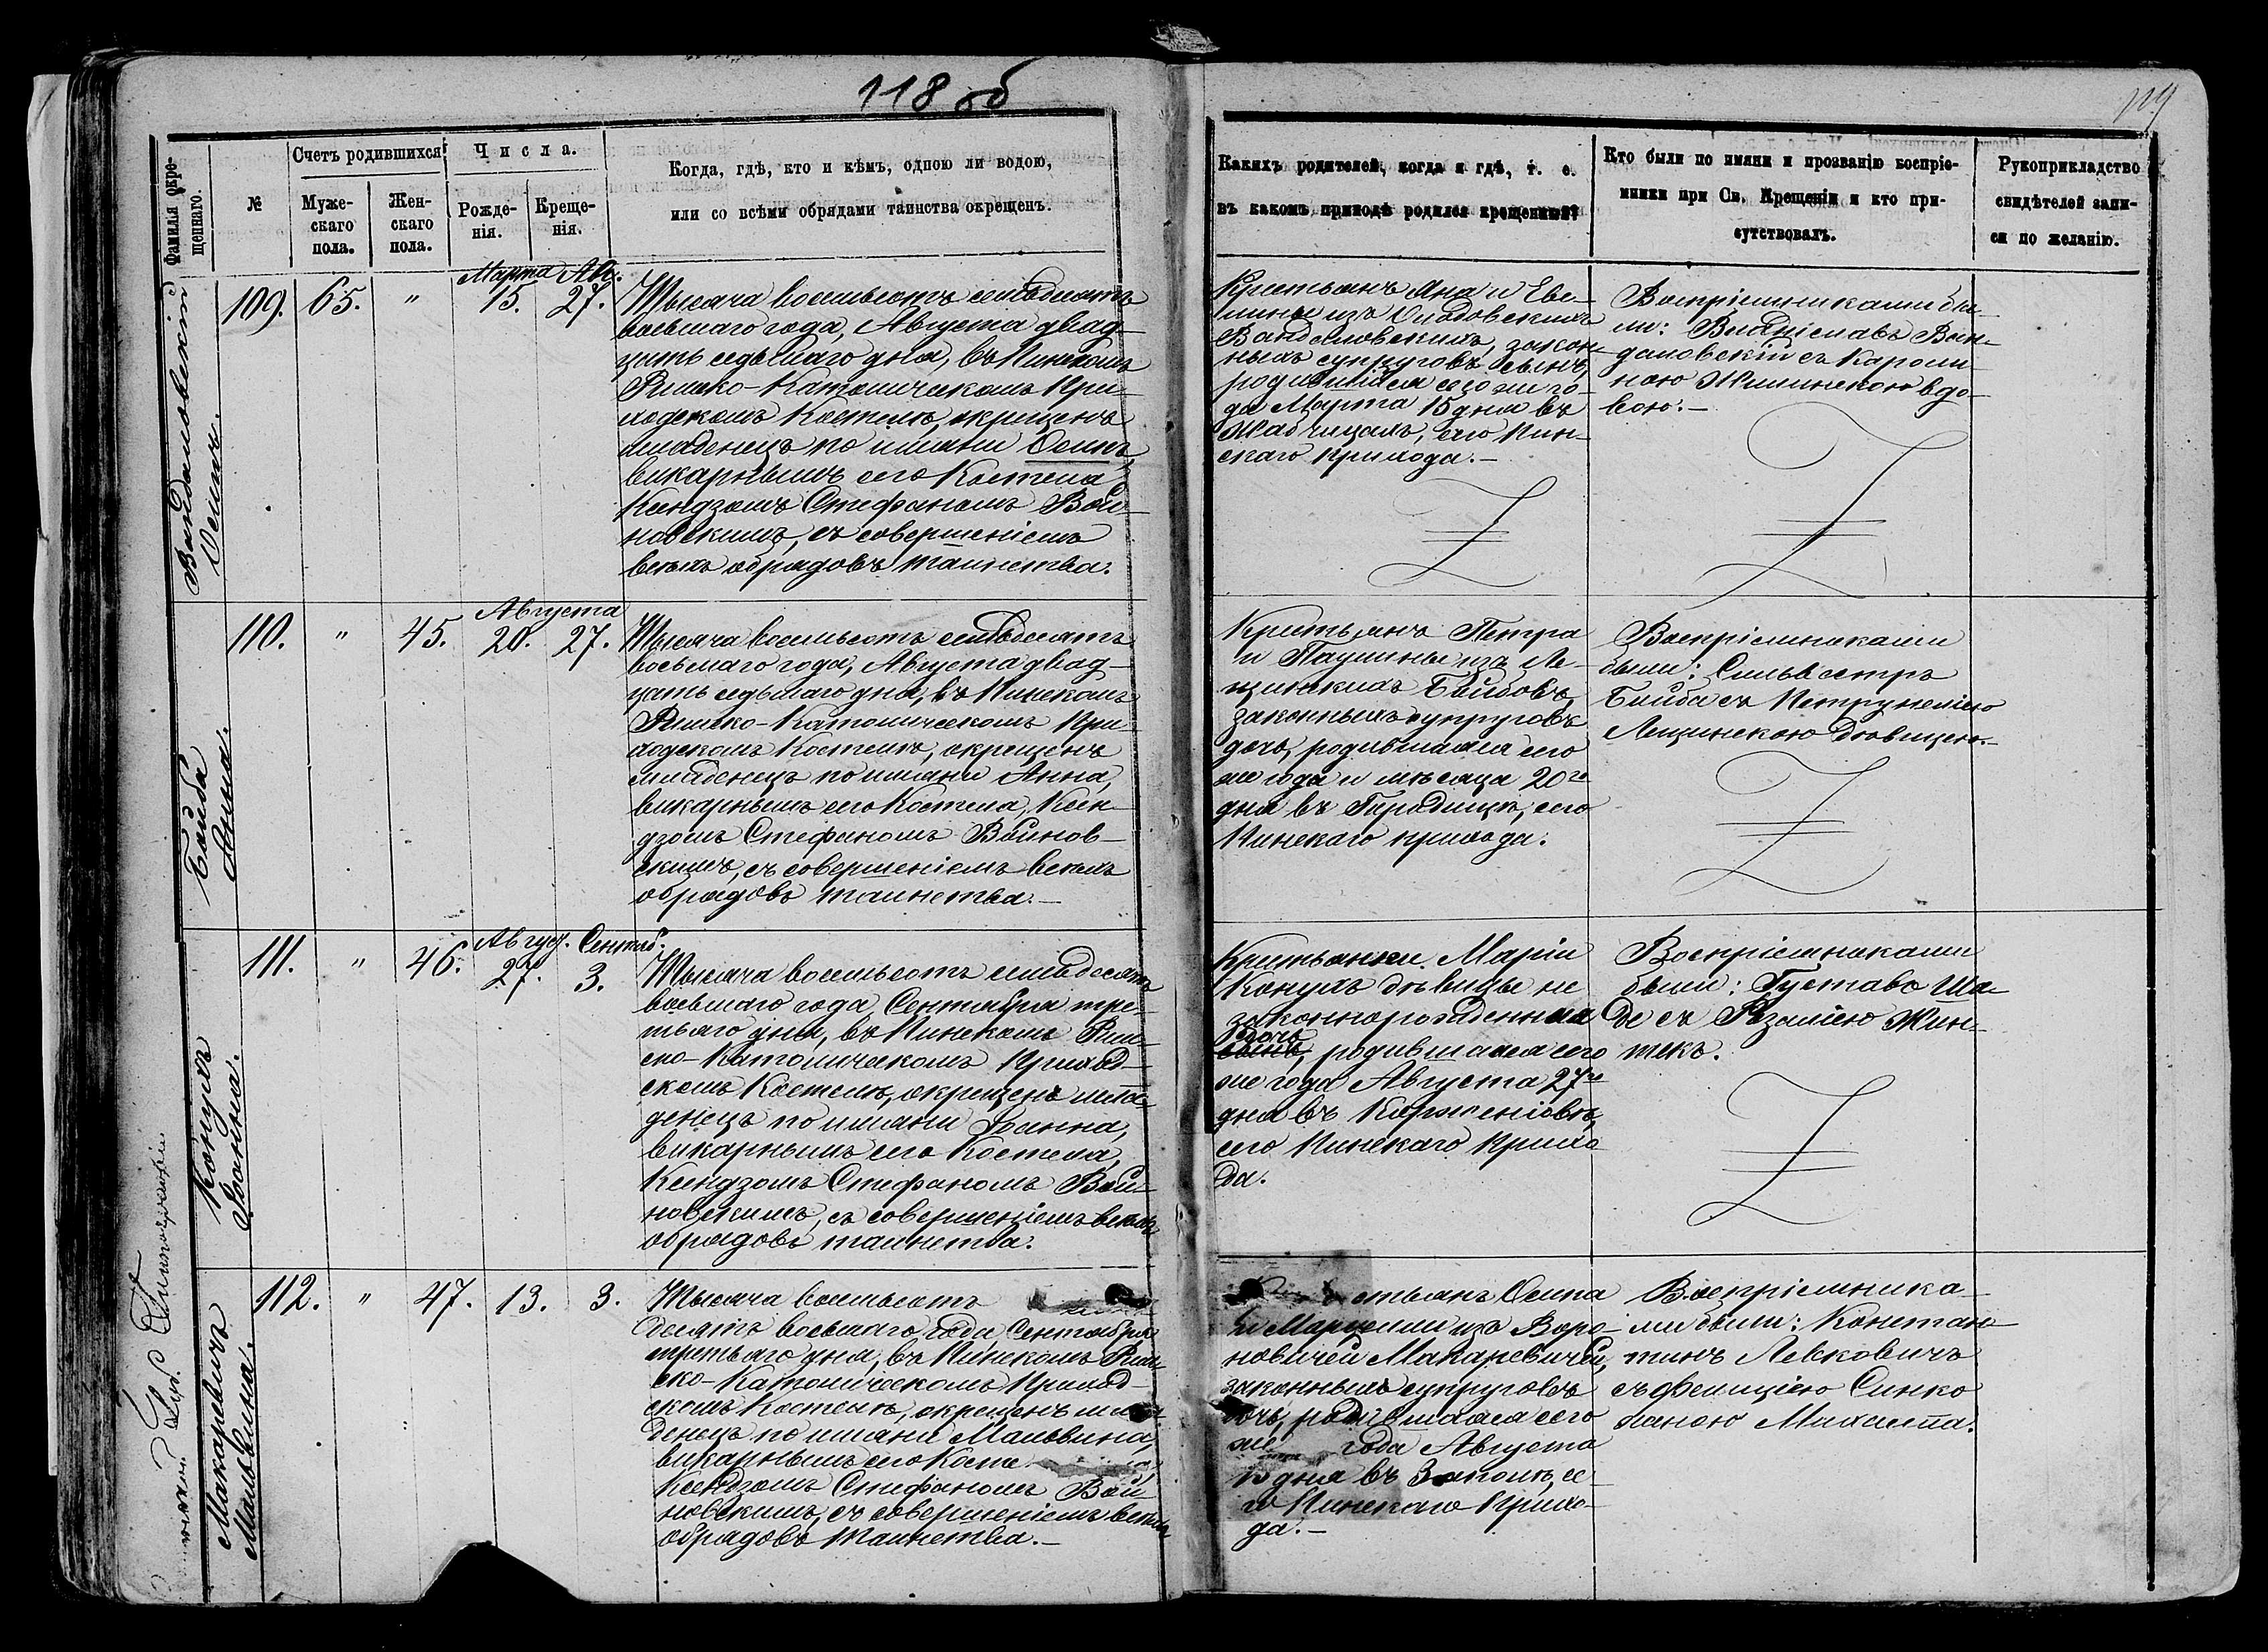 118 об
119
Фамилія окре-
щеннаго.
№
Счетъ родившихся:
Муже-
скаго
пола.
Жен-
скаго
пола.
Числа.
Рожде-
нія.
Креще-
нія.
Когда, гдѣ, кто и кѣмъ, одною ли водою,
или со всѣми обрядами таинства окрещенъ.
Какихъ родителей, когда и гдѣ, т. е.
въ какомъ приходѣ родился крещенный?
Кто были по имяни и прозванію воспріе-
мники при Св. Крещеніи и кто при-
сутствовалъ.
Рукоприкладство
свидѣтелей запи-
си по желанію.
Вандаловскій
Осипъ.
109. 65. "
Марта Ав.
15. 27.
Тысяча восемьсотъ семьдесятъ
восьмаго года, Августа двад-
цать седьмаго дня, въ Пинскомъ
Римско-Католическомъ При-
ходскомъ Костелѣ, окрещенъ
младенецъ по имяни Осипъ,
викарнымъ сего Костела
Ксендзомъ Стефаномъ Вой-
новскимъ, съ совершеніемъ
всѣхъ обрядовъ таинства.
Крестьянъ Яна и Еве-
лины изъ
Вандаловскихъ, закон-
ныхъ супруговъ сынъ,
родившійся сего же го-
да Марта 15 дня въ
Жабчицахъ, сего Пин-
скаго прихода.—
Воспріемниками бы-
ли: Владиславъ Ван-
даловскій съ Кароли-
ною Жилинскою вдо-
вою.—
Бойба
Анна.
110. " 45.
Августа
20. 27.
Тысяча восемьсотъ семьдесятъ
восьмаго года, Августа двад-
цать седьмаго дня, въ Пинскомъ
Римско-Католическомъ При-
ходскомъ Костелѣ, окрещенъ
младенецъ по имяни Анна,
викарнымъ сего Костела, Ксен-
дзомъ Стефаномъ Войнов-
скимъ, съ совершеніемъ всѣхъ
обрядовъ таинства.—
Крестьянъ Петра
и Паулины изъ Ле-
щинскихъ Бойбовъ,
законныхъ супруговъ
дочь, родившаяся сего
же года и мѣсяца 20го
дня въ Городищѣ, сего
Пинскаго прихода.
Воспріемниками
были: Сильвестръ
Бойба съ Петрунелею
Лещинскою дѣвицею.—
Конухъ
Іоанна.
111. " 46.
Август. Сентяб.
27. 3.
Тысяча восемьсотъ семьдесятъ
восьмаго года Сентября тре-
тьяго дня, въ Пинскомъ Рим-
ско-Католическомъ Приход-
скомъ Костелѣ, окрещенъ мла-
денецъ по имяни Іоанна,
викарнымъ сего Костела,
Ксендзомъ Стефаномъ Вой-
новскимъ, съ совершеніемъ всѣхъ
обрядовъ таинства.
Крестьянки Маріи
Конухъ дѣвицы не
законнорожденная
дочь
сынъ, родившаяся сего
же года Августа 27го
дня въ
сего Пинскаго Прихо-
да.
Воспріемниками
были: Густавъ Ша-
де съ Розаліею Жин-
текъ.
Макаревичъ
Мальвина.
112. " 47. 13. 3.
Тысяча восемьсотъ семь
десятъ восьмаго года Сентября
третьяго дня, въ Пинскомъ Рим-
ско-Католическомъ Приход-
скомъ Костелѣ, окрещенъ мла-
денецъ по имяни Мальвина,
викарнымъ сего Косте
Ксендзомъ Стефаномъ Вой-
новскимъ, съ совершеніемъ всѣхъ
обрядовъ таинства.—
стьянъ Осипа
и Марцелли изъ Воро-
новичей Макаревичей,
законныхъ супруговъ
дочь, родившаяся сего
же года Августа
дня въ се-
го Пинскаго Прихо-
да.—
Воспріемника-
ми были: Констан-
тинъ Левковичъ
съ Фелиціею Синко
женою Михаила.